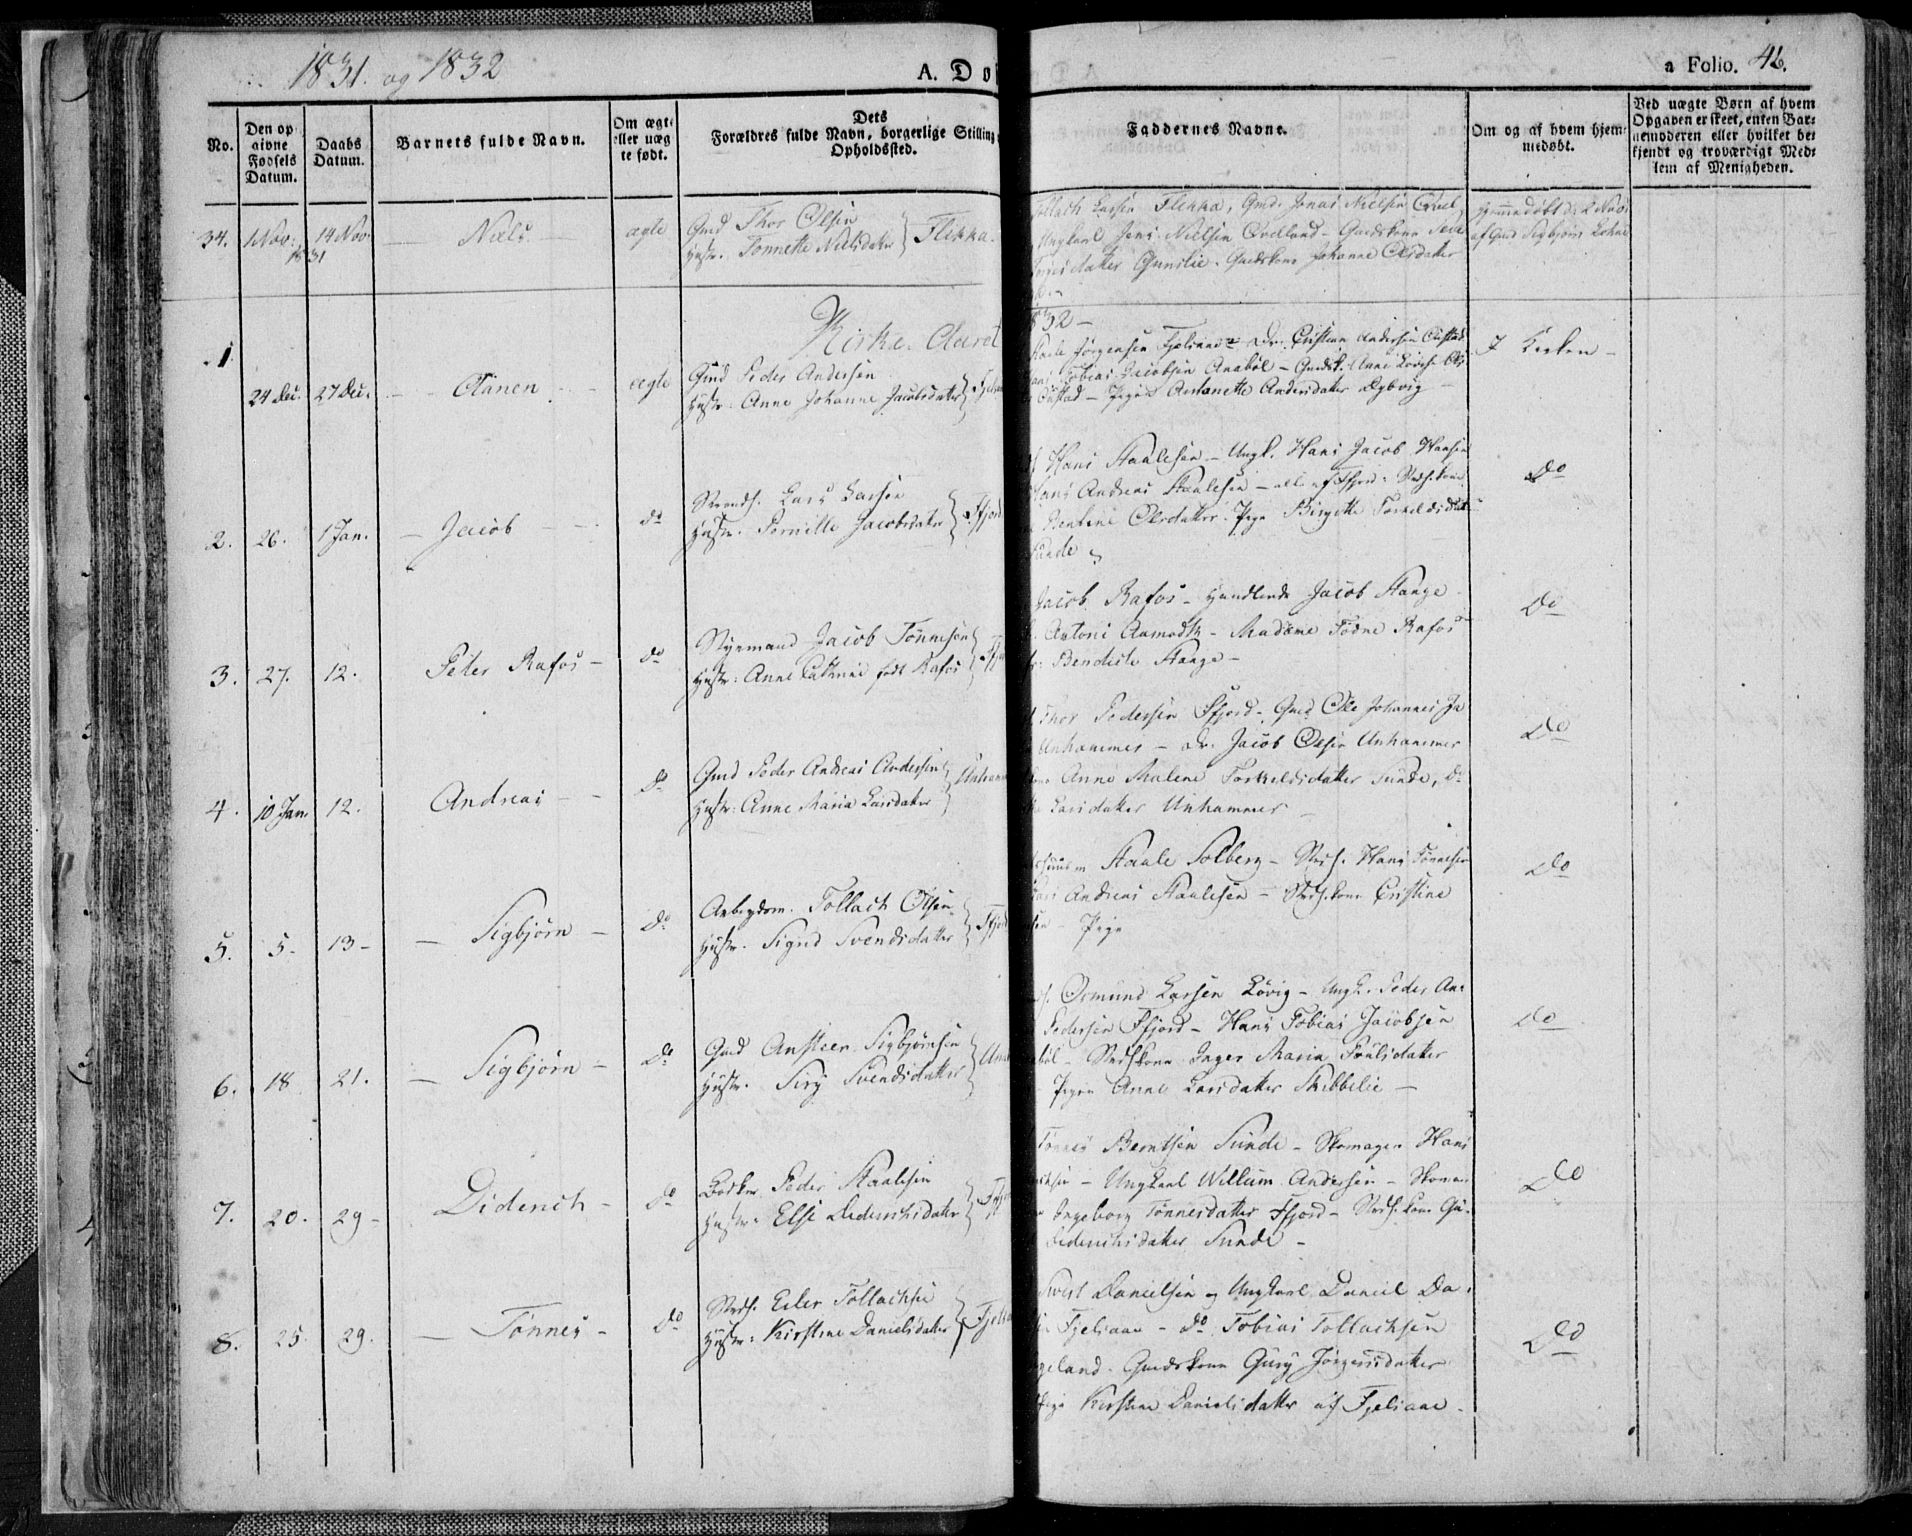 1831. og 1832
A. Do
a Folio. 46.
No.
Den op
givne
Fødsels
Datum.
Daabs
Datum.
Barnets fulde Navn.
Om ægte
eller uæg
te født.
Dets
Forældres fulde Navn, borgerlige Stilling
Opholdssted.
Faddernes Navne.
Om og af hvem hjem-
medøbt.
Ved uægte Børn af hvem
Opgaven er skeet, enten Bar-
nemoderen eller hvilket be-
kjendt og troværdigt Med-
lem af Menigheden.
34. 1 Nov. 14 Nov. Niels ægte Gmd Thor Olsen
1831
Hustr. Tonnette Nielsdatter Flikka.
Tollach Larsen Flikka, Gmd. Jonas Nielsen
Ungkarl Jens Nielsen Qvelland - Gmdskone
datter Gunilie. Gmdskone Johanne Olsdatter
Hjemmedøbt d. 2 Nov.
af Gmd Sigbjørn
Kirke-Aaret
1832 -
1 24 Dec. 27 Dec. Annen ægte Gmd Peder Andersen
Hustr. Anne Johanne Jacobsdatter
Staale Jørgensen - Do. Cristian Andersen
Tobias Jacobsen Anabøl - Gmdsk. Anne
- Pige Antonette Andersdatter Dybvig
I Kirken -
2. 26. 1 Jan. - Jacob - do Strands. Lars Larsen
Hustr. Pernille Jacobsdatter Ffjord
Hans Staalesen - Ungk. Hans Jacob Hansen
Hans Andreas Staalesen - alle af Ffjord - Strds.kone
Bentine Olsdatter. Pige Birgitte Torkeldsdatter
Sunde
Do
3. 27. 12. Peter Rafos - do Styrmand Jacob Tønnesen
Hustr: Anne Cathrine født Rafos
Jacob Rafos - Handlende Jacob Stange
Antoni Aamodt - Madame Todne Rafos
Bendicte Stange -
Do
4. 10 Jan. 12. Andreas - do Gmd Peder Andreas Andersen
Hustr: Anne Maria Larsdatter
Thor Pedersen Ffjord - Gmd Ole Johannes
Unhammer - Do. Jacob Olsen Unhammer
Anne Malene Torkeldsdatter Sunde, Do
Larsdatter Unhammer
Do
5. 5. 13 - - Sigbjørn - do Arbeydsm. Tollach Olsen
Hustr. Sigrid Svendsdatter Ffjord
Staale Solberg - Strds. Hans Tønnesen
Andreas Staalesen - Strds.kone Cristine
- Pige
Do
6. 18 21. - Sigbjørn - Do Gmd Ansteen Sigbjørnsen
Hustr. Siry Svendsdatter
Osmund Larsen Løvig - Ungk. Peder An-
Pedersen Ffjord - Hans Tobias Jacobsen
- Strdskone Inger Maria Poulsdatter
Pigen Anne Larsdatter Skibbelie -
Do
7. 20. 29 - Diderich - do Bødker Peder Staalesen
Hustr. Else Diderichsdatter
Tønnes Berntsen Sunde - Skomager Hans
- Ungkarl Willum Andersen - Skoma-
Ingeborg Tønnesdatter Ffjord - Strds.kone Gu-
Diderichsdatter Sunde -
Do
8. 25. 29. - Tønnes - Do Strds. Eiler Tollachsen
Hustr: Kirstine Danielsdatter
Danielsen og Ungkarl Daniel Da-
Fjeliaae - do Tobias Tollachsen
Gmdskone Gury Jørgensdatter
Pige Kirstine Danielsdatter af Fjeliaae -
Do